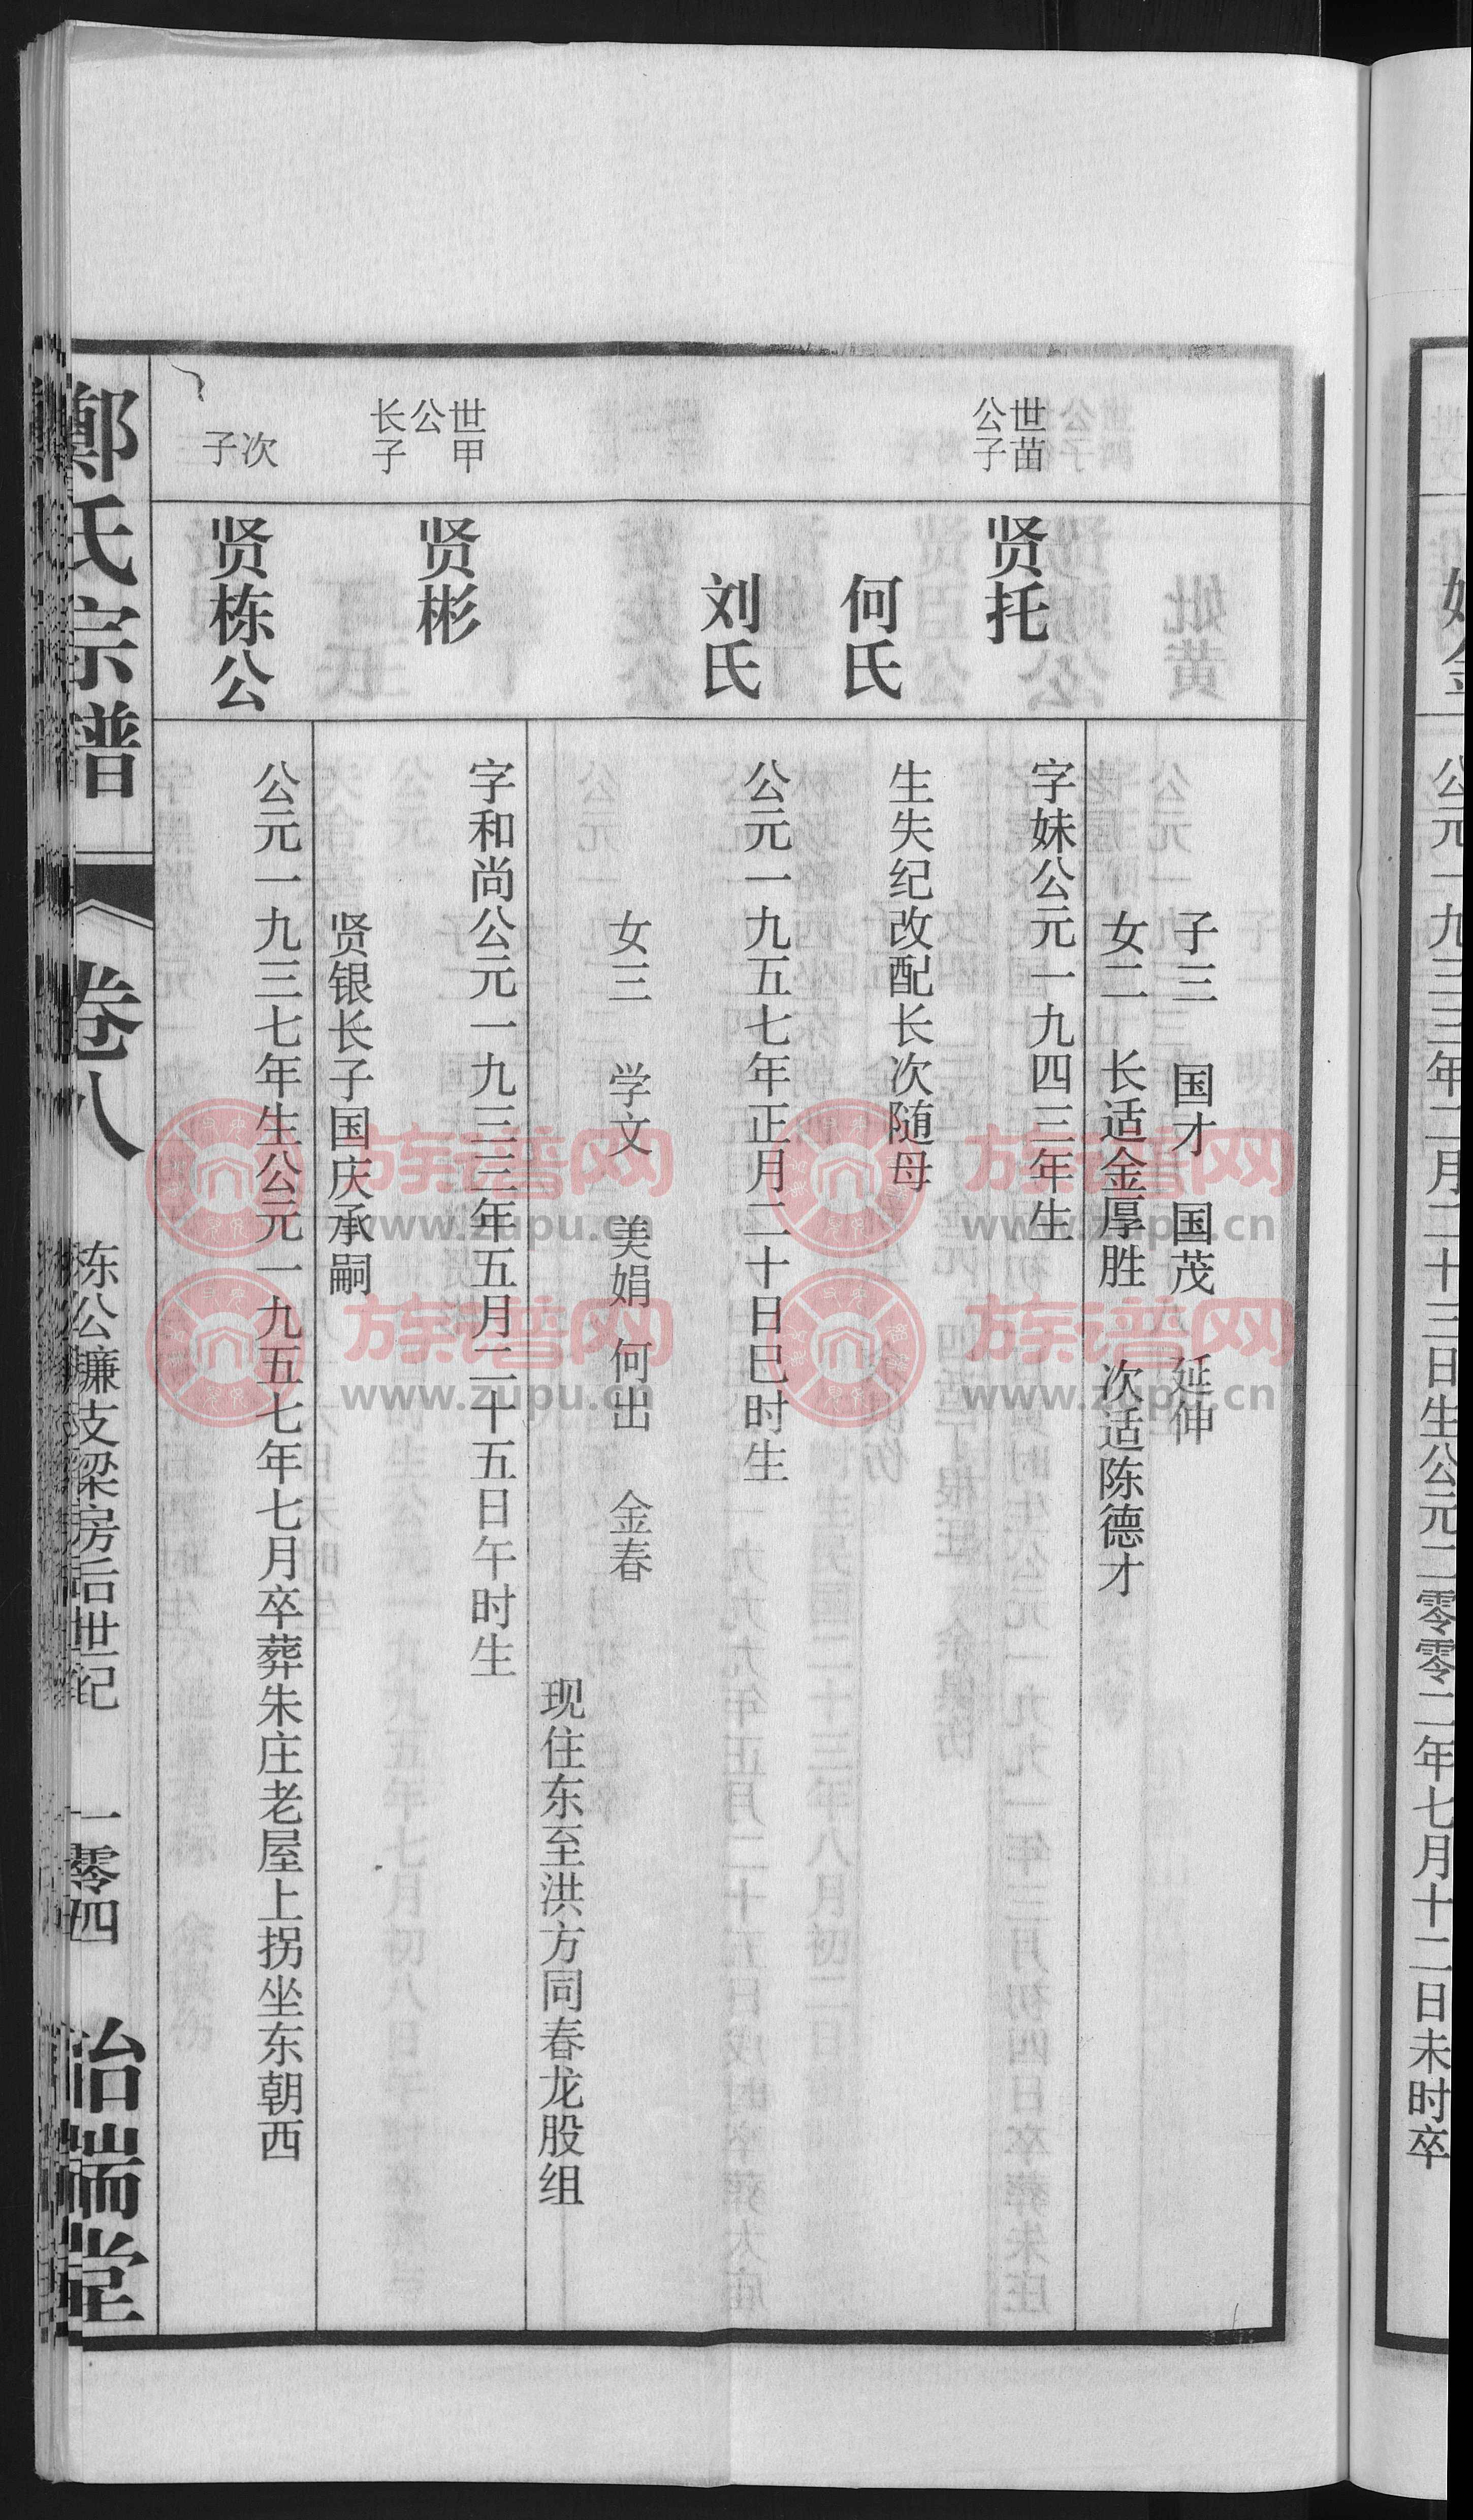 公元一九三三年二月二十三日生公元二零零二年七月十二日未时卒
子三 国才 国茂 延伸
女二 长适金厚胜 次适陈德才
世苗公子
贤托
字妹公元一九四三年生
何氏
生失纪改配长次随母
刘氏
公元一九五七年正月二十日巳时生
女三 学文 美娟 何出 金春
现住东至洪方同春龙股组
世甲公长子
贤彬
字和尚公元一九三三年五月二十五日午时生
贤银长子国庆承嗣
次子
贤栋公
公元一九三七年生公元一九五七年七月卒葬朱庄老屋上拐坐东朝西
鄭氏宗譜 卷八 栋公㢘支梁房后世纪 一零四
族谱网
www.zupu.cn
族谱网
www.zupu.cn
族谱网
www.zupu.cn
族谱网
www.zupu.cn